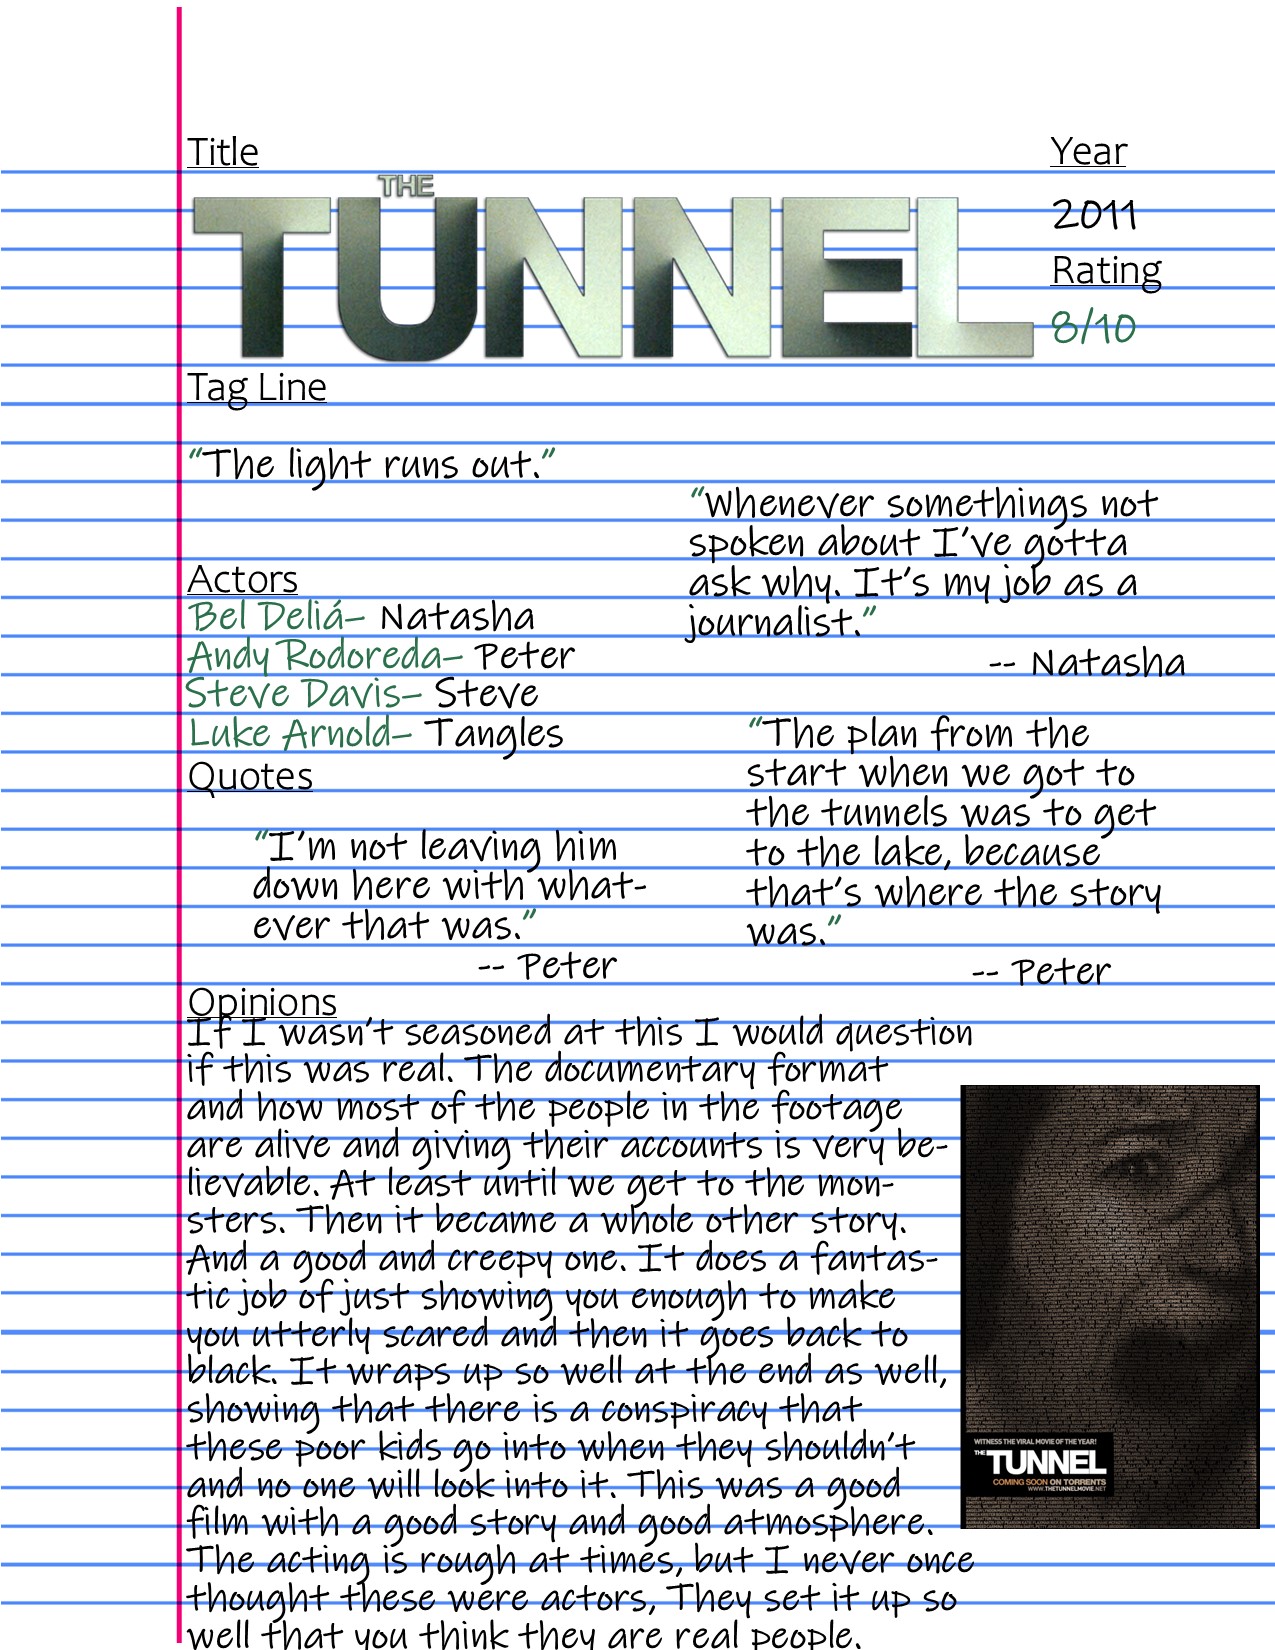 Title
THE
TUNNEL
Year
2011
Rating
8/10
Tag Line
“The light runs out.”
Actors
Bel Deliá– Natasha
Andy Rodoreda– Peter
Steve Davis– Steve
Luke Arnold– Tangles
Quotes
“Whenever somethings not
spoken about I’ve gotta
ask why. It’s my job as a
journalist.”
-- Natasha
“I’m not leaving him
down here with what-
ever that was.”
-- Peter
“The plan from the
start when we got to
the tunnels was to get
to the lake, because
that’s where the story
was.”
-- Peter
Opinions
If I wasn’t seasoned at this I would question
if this was real. The documentary format
and how most of the people in the footage
are alive and giving their accounts is very be-
lievable. At least until we get to the mon-
sters. Then it became a whole other story.
And a good and creepy one. It does a fantas-
tic job of just showing you enough to make
you utterly scared and then it goes back to
black. It wraps up so well at the end as well,
showing that there is a conspiracy that
these poor kids go into when they shouldn’t
and no one will look into it. This was a good
film with a good story and good atmosphere.
The acting is rough at times, but I never once
thought these were actors, They set it up so
well that you think they are real people.
WITNESS THE VIRAL MOVIE OF THE YEAR!
THE TUNNEL
COMING SOON ON TORRENTS
WWW.THETUNNELMOVIE.NET